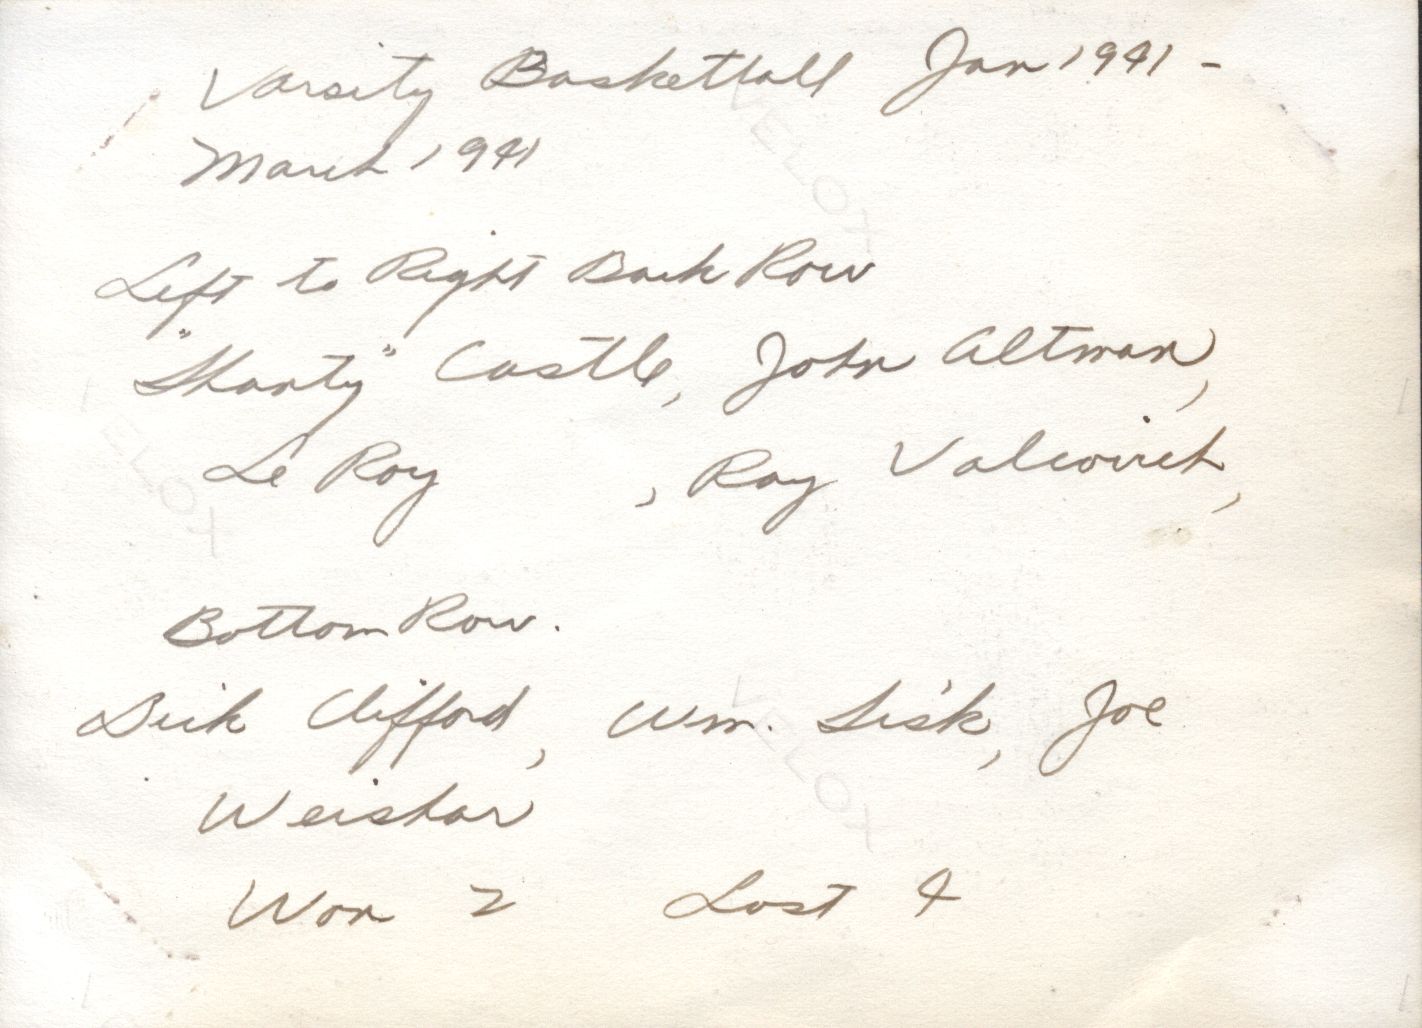 Varsity Basketball Jan 1941 -
March 1941
Left to Right Back Row
"Shanty" Castle, John Altman,
Le Roy , Ray Valcovich,
Bottom Row.
Dick Clifford, Wm. Sisk, Joe
Weishar
Won 2 Lost 4
VELOX
VELOX
VELOX